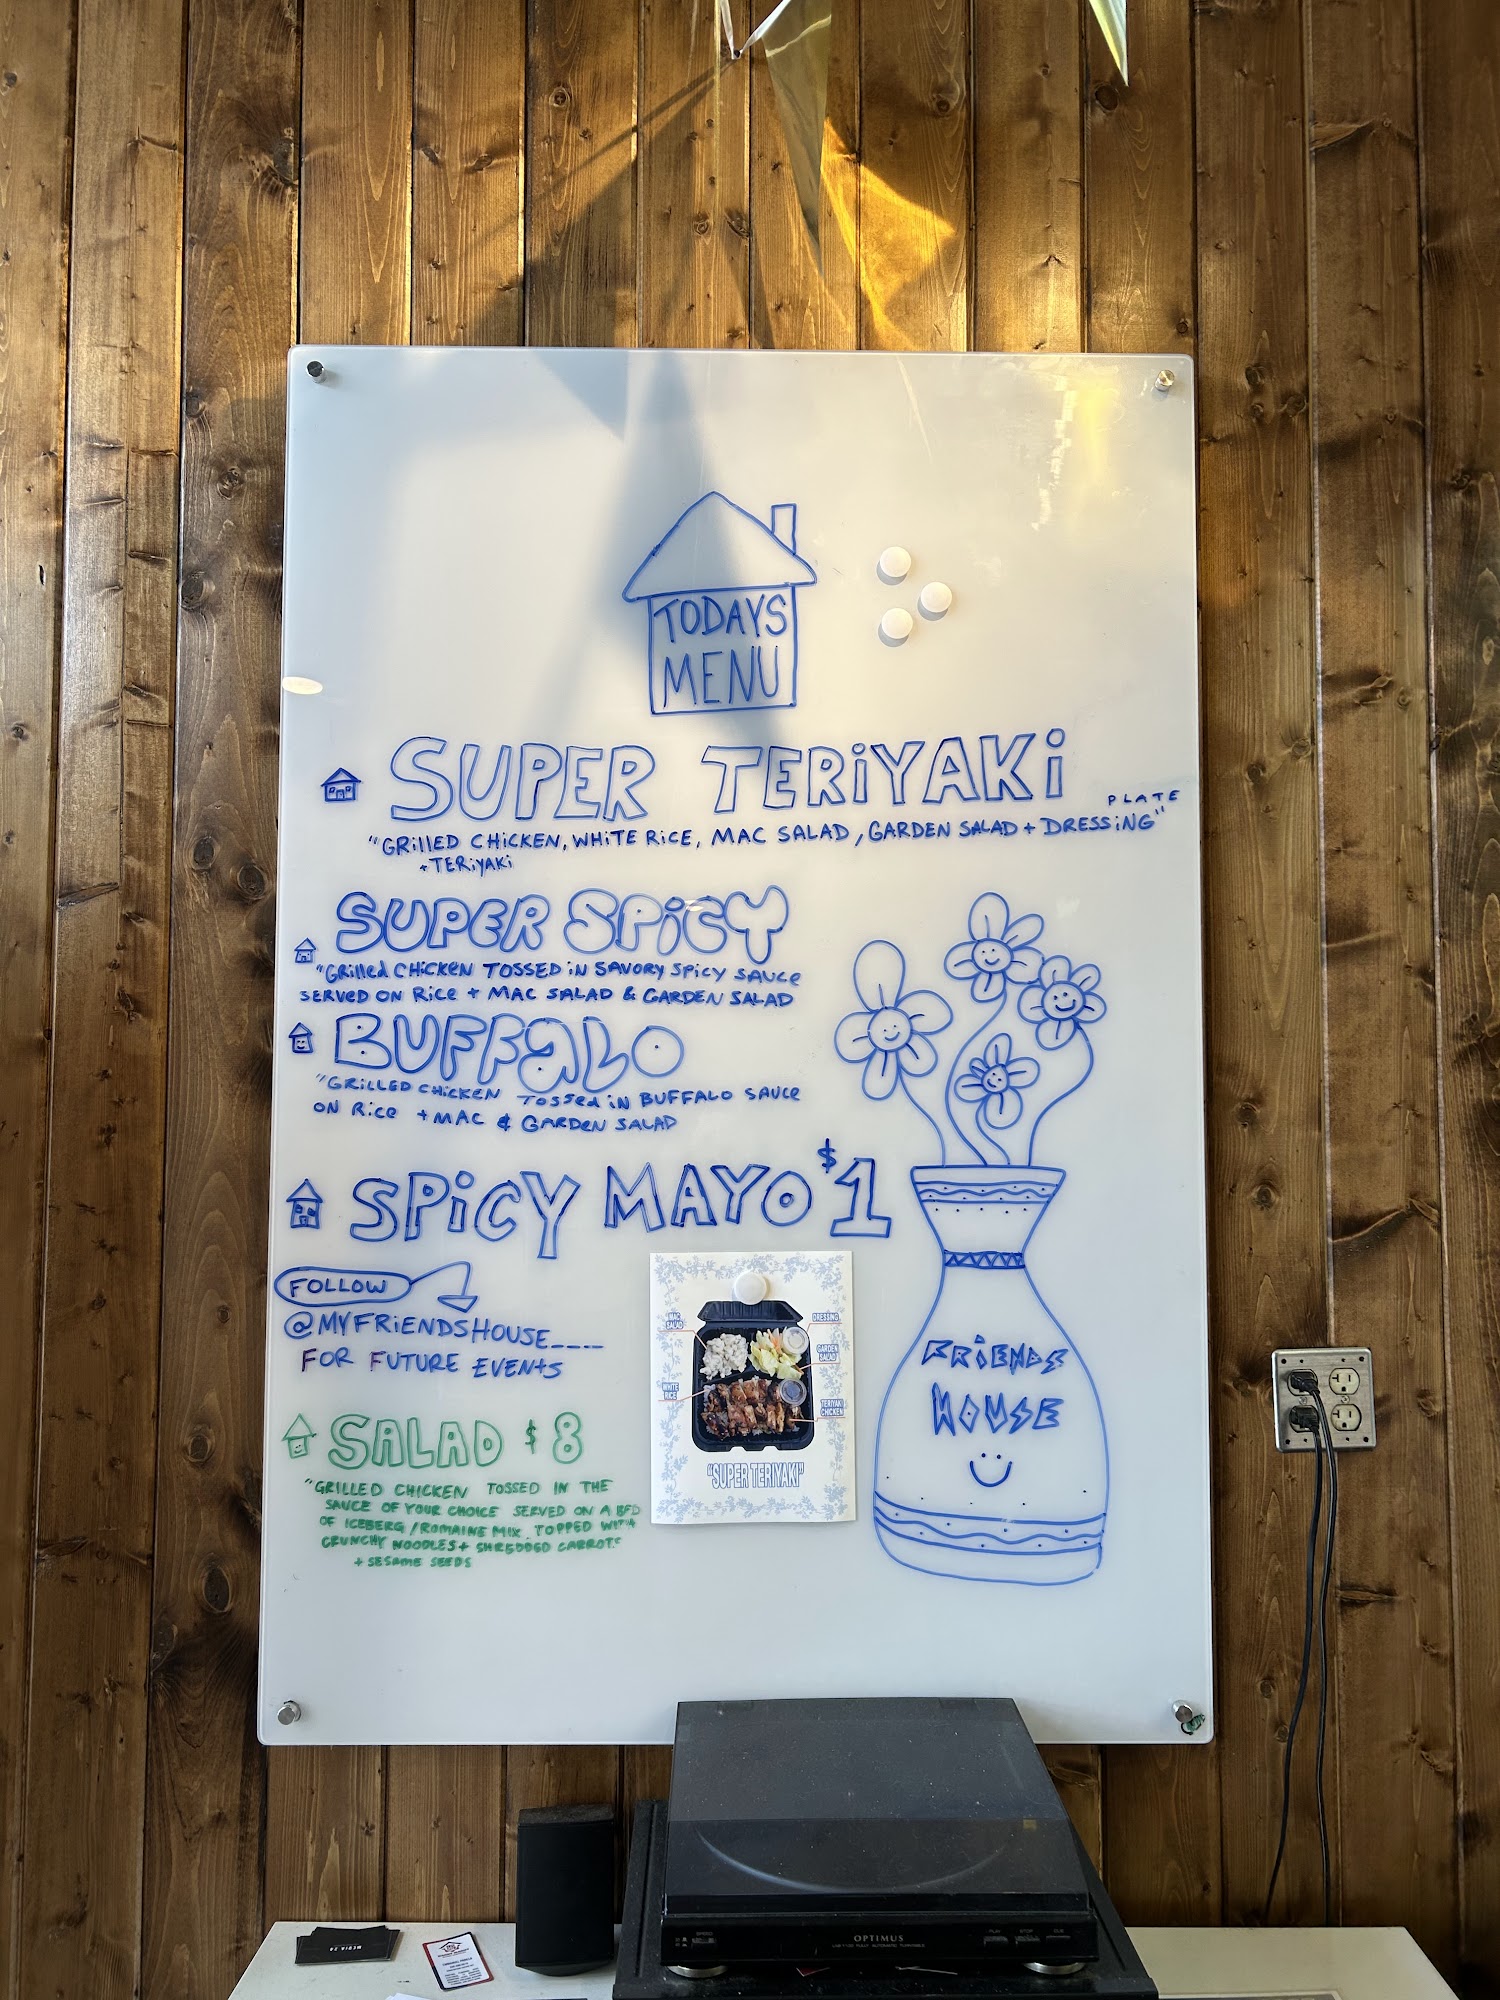 TODAYS
MENU
SUPER TERiYAKi
PLATE
"GRillED CHiCKEN, WHiTE RiCE, MAC SALAD, GARDEN SALAD + DRESSiNG"
+ TERiYAKi
SUPER SPiCY
"GRilled CHiCKEN TOSSED iN SAVORY SPiCY SAUCE
SERVED ON RiCE + MAC SALAD & GARDEN SALAD
BUFFaLO
"GRiLLED CHiCKEN TOSSed iN BUFFALO SAUCE
ON RiCe + MAC & GARDEN SALAD
SPiCY MAYO $1
FOLLOW
@MYFRiENDSHOUSE____
FOR FUTURE EVENTS
SALAD $8
"GRILLED CHICKEN TOSSED IN THE
SAUCE OF YOUR CHOICE SERVED ON A BED
OF ICEBERG/ROMAINE MIX. TOPPED WITH
CRUNCHY NOODLES + SHREDDED CARROTS
+ SESAME SEEDS
MAC
SALAD
DRESSING
GARDEN
SALAD
WHITE
RICE
TERIYAKI
CHICKEN
"SUPER TERIYAKI"
FRiENDS
HOUSE
OPTIMUS
MEDIA 24